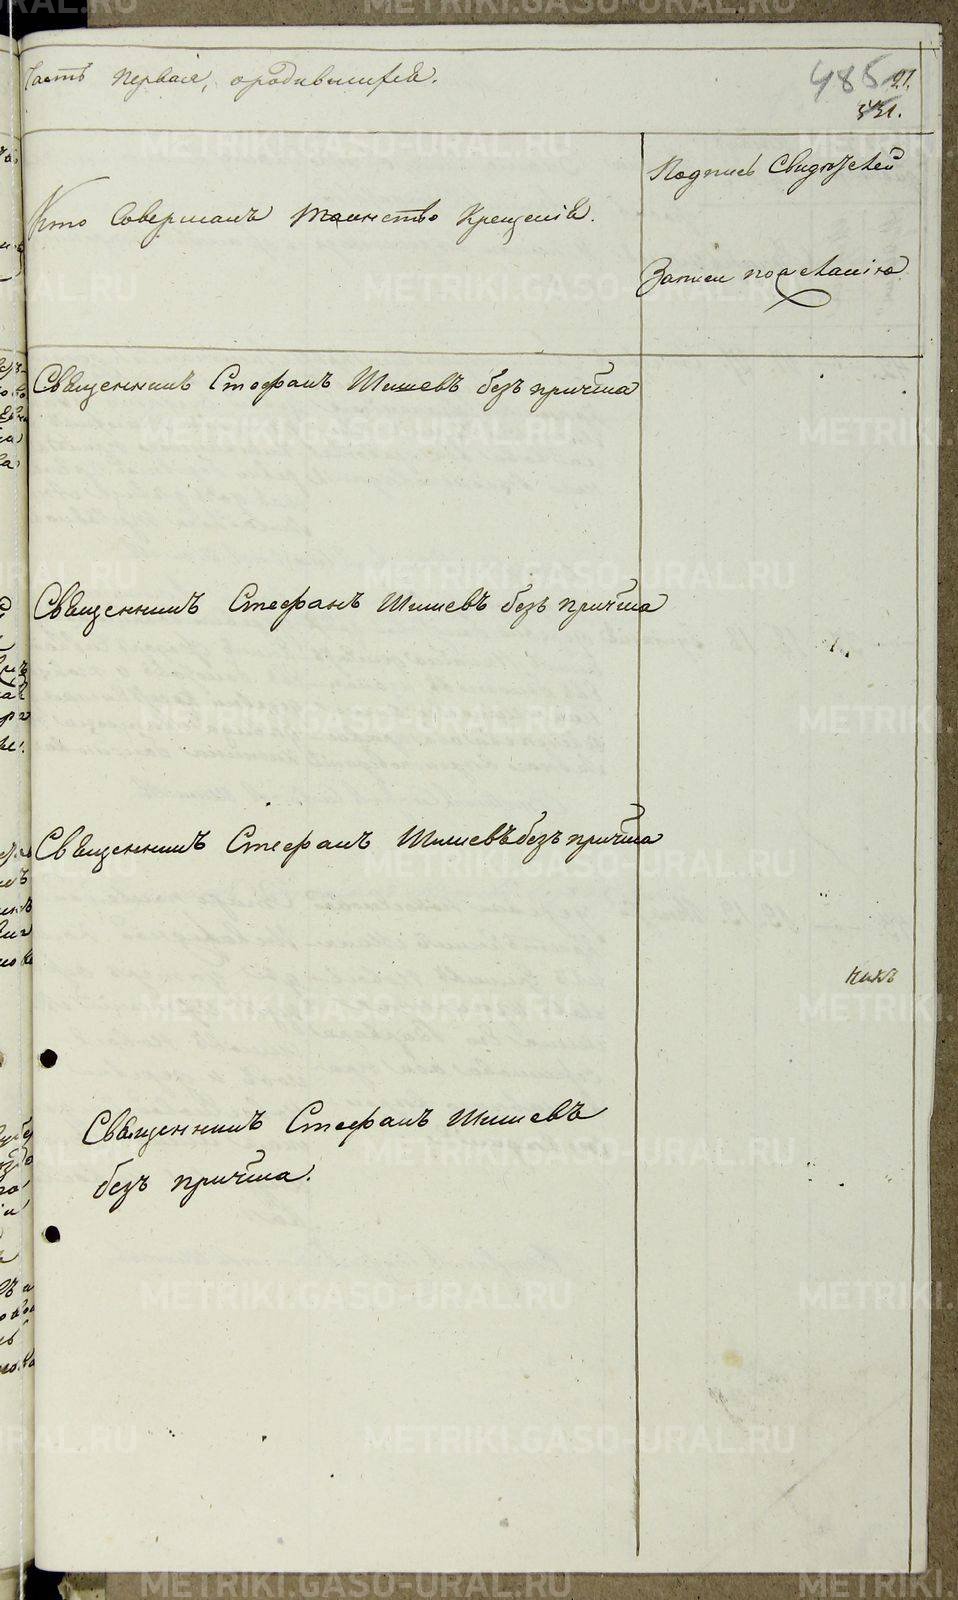 Часть первая, о родившихся.
485 21.
Подпись Свидѣтелей
Кто Совершалъ таинство Крещенія.
Записи по желанію
Священникъ Стефанъ Шишевъ безъ причта
Священникъ Стефанъ Шишевъ безъ причта
Священникъ Стефанъ Шишевъ безъ причта
Священникъ Стефанъ Шишевъ
безъ причта.
METRIKI.GASO-URAL.RU